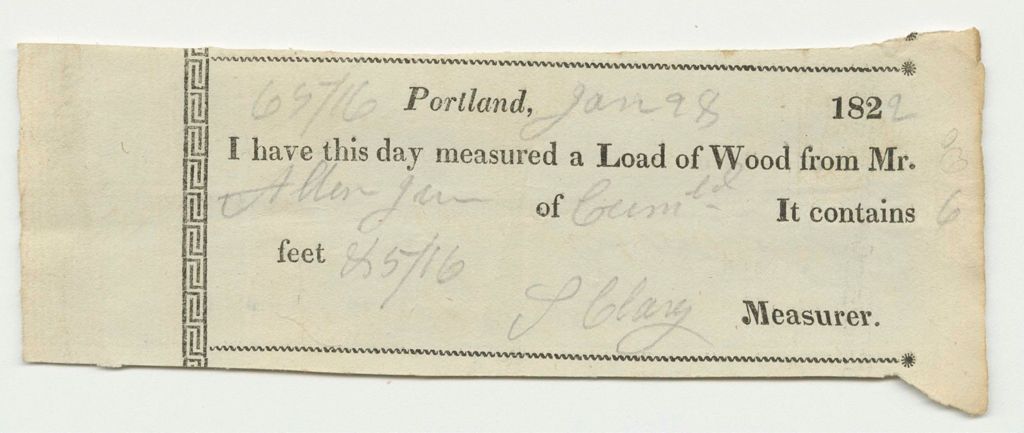 65/16 Portland, Jan 28 1822
I have this day measured a Load of Wood from Mr.
Allen Jun of Cumld It contains 6
feet & 5/16
S Clary Measurer.